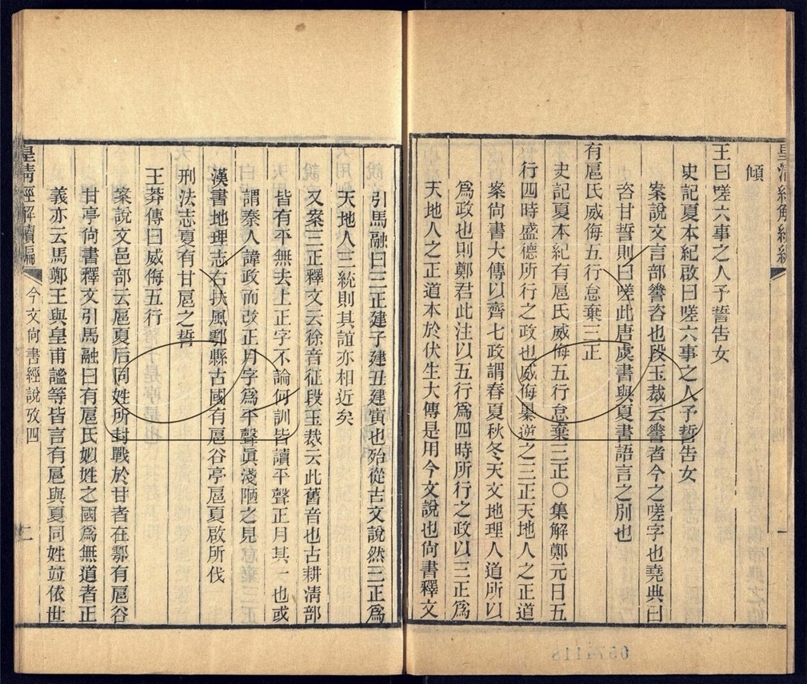 傾
王曰嗟六事之人予誓告女
史記夏本紀啟曰嗟六事之人予誓告女
案說文言部䜺咨也段玉裁云䜺者今之嗟字也堯典曰
咨甘誓則曰嗟此唐虞書與夏書語言之別也
有扈氏威侮五行怠棄三正
史記夏本紀有扈氏威侮五行怠棄三正○集解鄭元曰五
行四時盛德所行之政也威侮暴逆之三正天地人之正道
案尙書大傳以齊七政謂春夏秋冬天文地理人道所以
爲政也則鄭君此注以五行爲四時所行之政以三正爲
天地人之正道本於伏生大傳是用今文說也尙書釋文
引馬融曰三正建子建丑建寅也殆從古文說然三正爲
天地人三統則其誼亦相近矣
又案三正釋文云徐音征段玉裁云此舊音也古耕淸部
皆有平無去上正字不論何訓皆讀平聲正月其一也或
謂秦人諱政而改正月字爲平聲眞淺陋之見
漢書地理志右扶風鄠縣古國有扈谷亭扈夏啟所伐
刑法志夏有甘扈之誓
王莽傳曰威侮五行
案說文邑部云扈夏后同姓所封戰於甘者在鄠有扈谷
甘亭尙書釋文引馬融曰有扈氏姒姓之國爲無道者正
義亦云馬鄭王與皇甫謐等皆言有扈與夏同姓竝依世
皇淸經解續編
今文尙書經說攷四
二